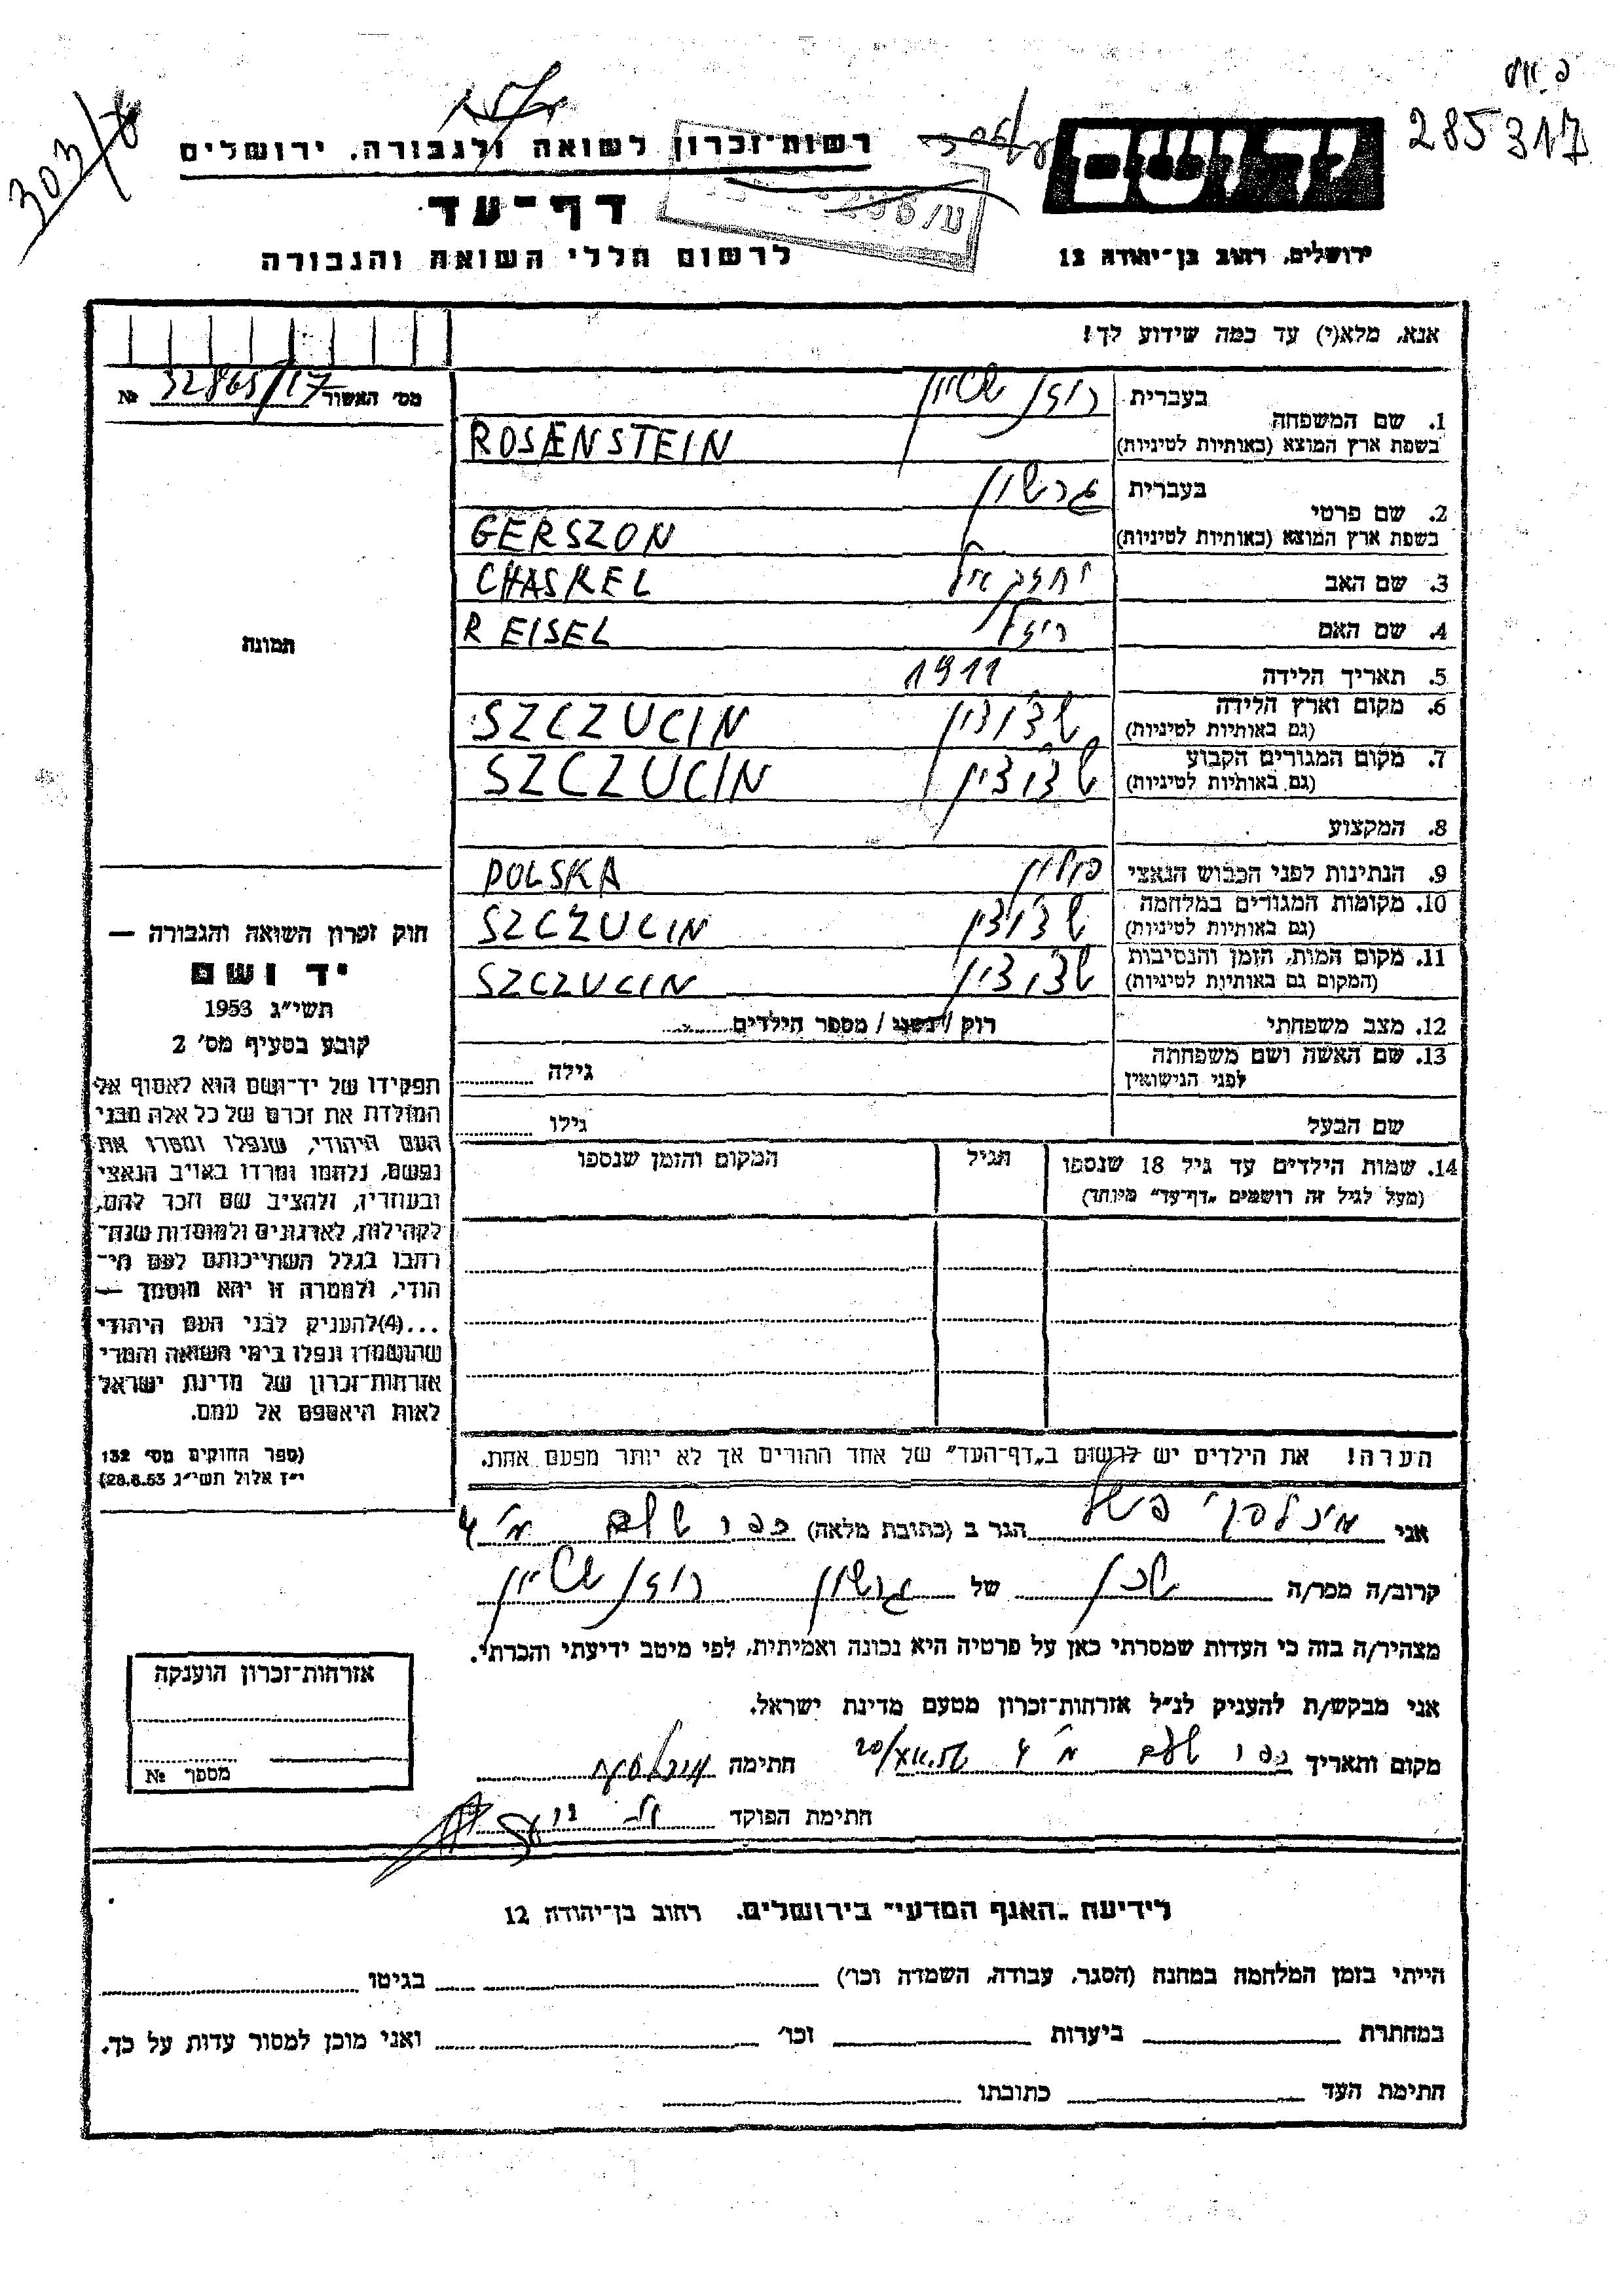 285317
303/8
רשות־זכרון לשואה ולגבורה, ירושלים
דף־עד
לרשום חללי השואה והגבורה
יד ושם
ירושלים, רחוב בן־יהודה 12
אנא, מלא(י) עד כמה שידוע לך!
מס׳ האשור 32865/17 №
1. שם המשפחה
בעברית רוזנשטיין
בשפת ארץ המוצא (באותיות לטיניות) ROSENSTEIN
2. שם פרטי
בעברית גרשון
בשפת ארץ המוצא (באותיות לטיניות) GERSZON
3. שם האב יחזקאל CHASKEL
4. שם האם רייזל REISEL
5. תאריך הלידה 1911
6. מקום וארץ הלידה שצ׳וצין SZCZUCIN
(גם באותיות לטיניות)
7. מקום המגורים הקבוע שצ׳וצין SZCZUCIN
(גם באותיות לטיניות)
8. המקצוע
9. הנתינות לפני הכבוש הנאצי פולין POLSKA
10. מקומות המגורים במלחמה שצ׳וצין SZCZUCIN
(גם באותיות לטיניות)
11. מקום המות, הזמן והנסיבות שצ׳וצין SZCZUCIN
(המקום גם באותיות לטיניות)
12. מצב משפחתי רוק / נשוי / מספר הילדים
13. שם האשה ושם משפחתה
לפני הנישואין גילה
שם הבעל גילו
14. שמות הילדים עד גיל 18 שנספו הגיל המקום והזמן שנספו
(מעל לגיל זה רושמים „דף־עד” מיוחד)
תמונה
חוק זכרון השואה והגבורה —
יד ושם
תשי״ג 1953
קובע בסעיף מס׳ 2
תפקידו של יד־ושם הוא לאסוף אל
המולדת את זכרם של כל אלה מבני
העם היהודי, שנפלו ומסרו את
נפשם, נלחמו ומרדו באויב הנאצי
ובעוזריו, ולהציב שם וזכר להם,
לקהילות, לארגונים ולמוסדות שנח־
רבו בגלל השתייכותם לעם הי־
הודי, ולמטרה זו יהא מוסמך —
...(4) להעניק לבני העם היהודי
שהושמדו ונפלו בימי השואה והמרי
אזרחות־זכרון של מדינת ישראל
לאות היאספם אל עמם.
(ספר החוקים מס׳ 132
י״ז אלול תשי״ג 28.8.53)
הערה! את הילדים יש לרשום ב„דף־העד” של אחד ההורים אך לא יותר מפעם אחת.
אני הגר ב (כתובת מלאה)
קרוב/ה מכר/ה שכן של גרשון רוזנשטיין
מצהיר/ה בזה כי העדות שמסרתי כאן על פרטיה היא נכונה ואמיתית, לפי מיטב ידיעתי והכרתי.
אני מבקש/ת להעניק לנ״ל אזרחות־זכרון מטעם מדינת ישראל.
מקום ותאריך חתימה
חתימת הפוקד
אזרחות־זכרון הוענקה
מספר №
לידיעת „האגף המדעי” בירושלים, רחוב בן־יהודה 12
הייתי בזמן המלחמה במחנה (הסגר, עבודה, השמדה וכו׳) בגיטו
במחתרת ביערות וכו׳ ואני מוכן למסור עדות על כך.
חתימת העד כתובתו